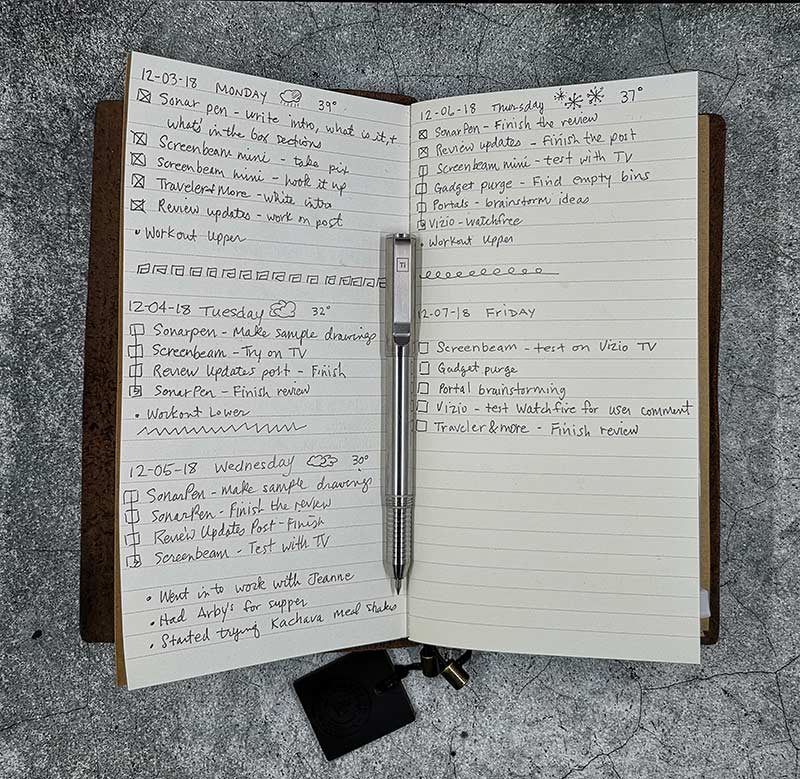 12-03-18 MONDAY 39°
Sonar pen - write intro, what is it, +
what's in the box sections
Screenbeam mini - take pix
Screenbeam mini - hook it up
Traveler&More - write intro
Review updates - work on post
• Workout Upper
12-04-18 Tuesday 32°
Sonarpen - Make sample drawings
Screenbeam - Try on TV
Review Updates post - Finish
SonarPen - Finish review
• Workout Lower
12-05-18 Wednesday 30°
SonarPen - make sample drawings
SonarPen - Finish the review
Review Updates Post - Finish
Screenbeam - Test with TV
• Went into work with Jeanne
• Had Arby's for supper
• Started trying Kachava meal shakes
Ti
12-06-18 Thursday 37°
SonarPen - Finish the review
Review updates - Finish the post
Screenbeam mini - test with TV
Gadget purge - Find empty bins
Portals - brainstorm ideas
Vizio - Watchfree
• Workout Upper
12-07-18 FRIDAY
Screenbeam - test on Vizio TV
Gadget purge
Portal brainstorming
Vizio - test Watchfire for user comment
Traveler&more - Finish review